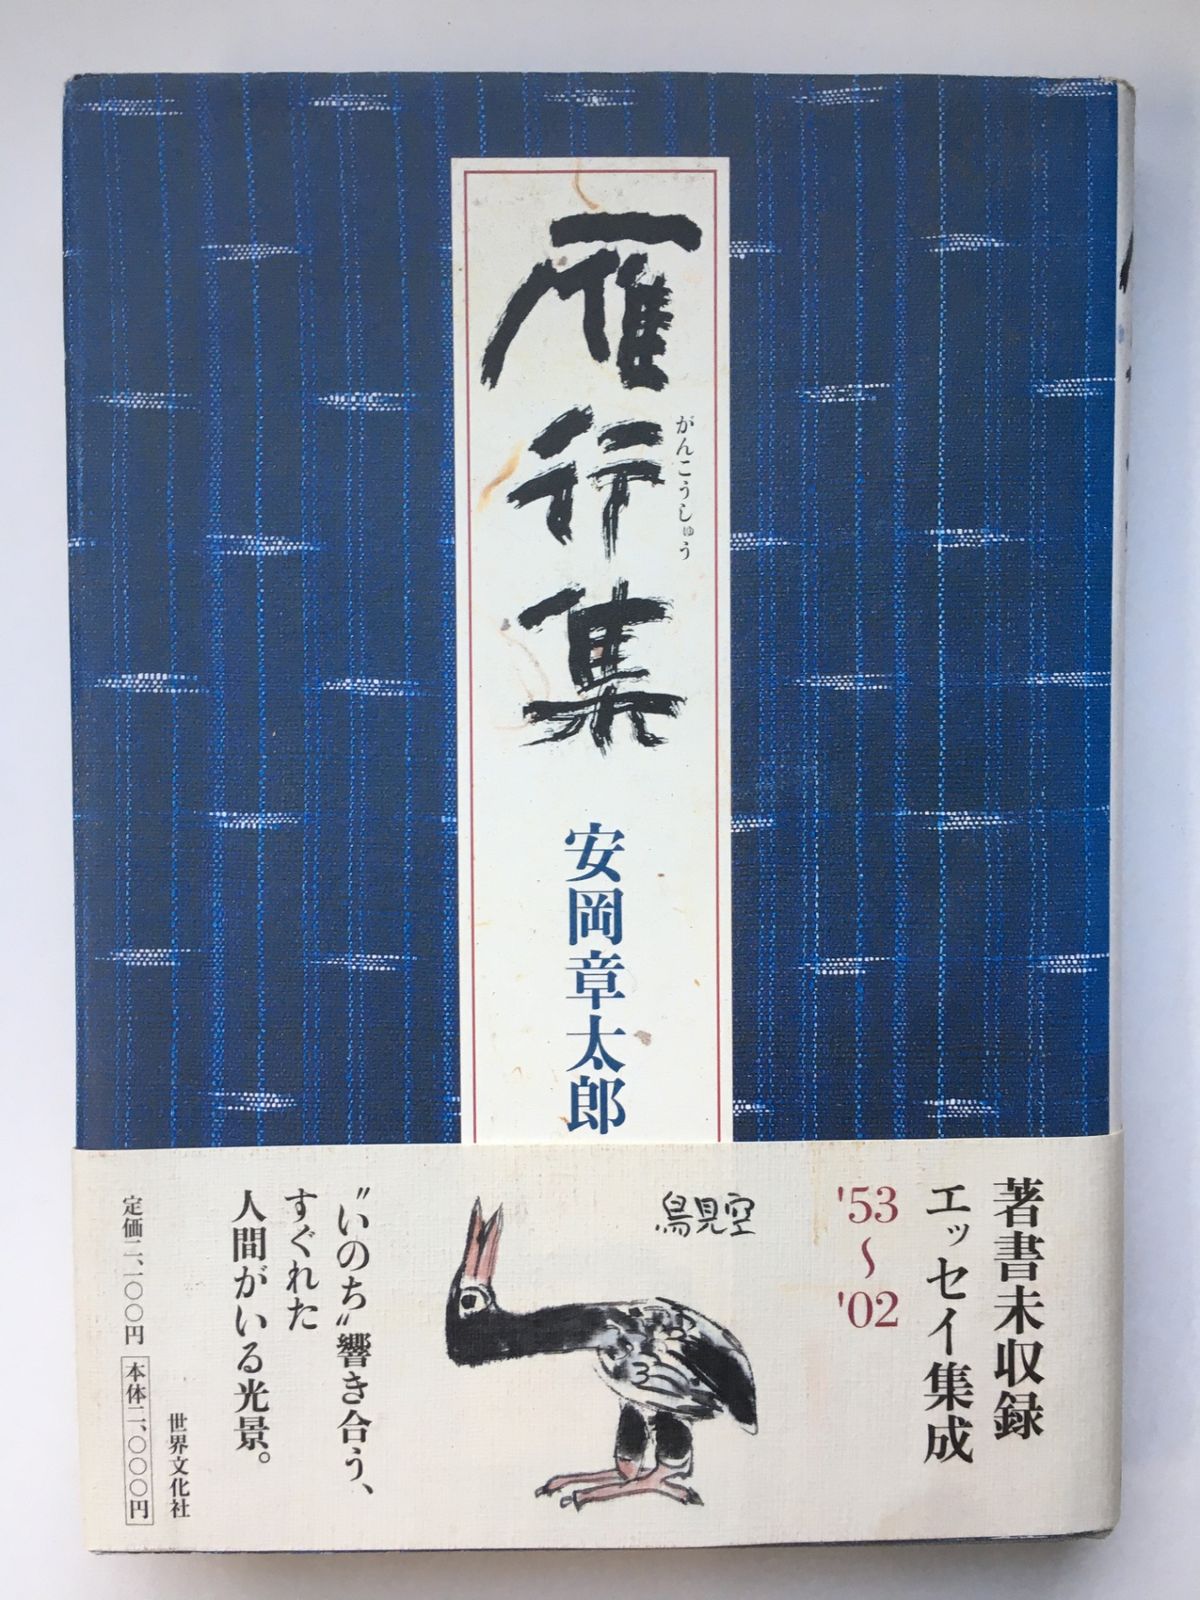 雁行集
がんこうしゅう
安岡章太郎
著書未収録
エッセイ集成
'53〜'02
鳥見空
〝いのち〟響き合う、
すぐれた
人間がいる光景。
世界文化社
定価二、一〇〇円 本体二、〇〇〇円